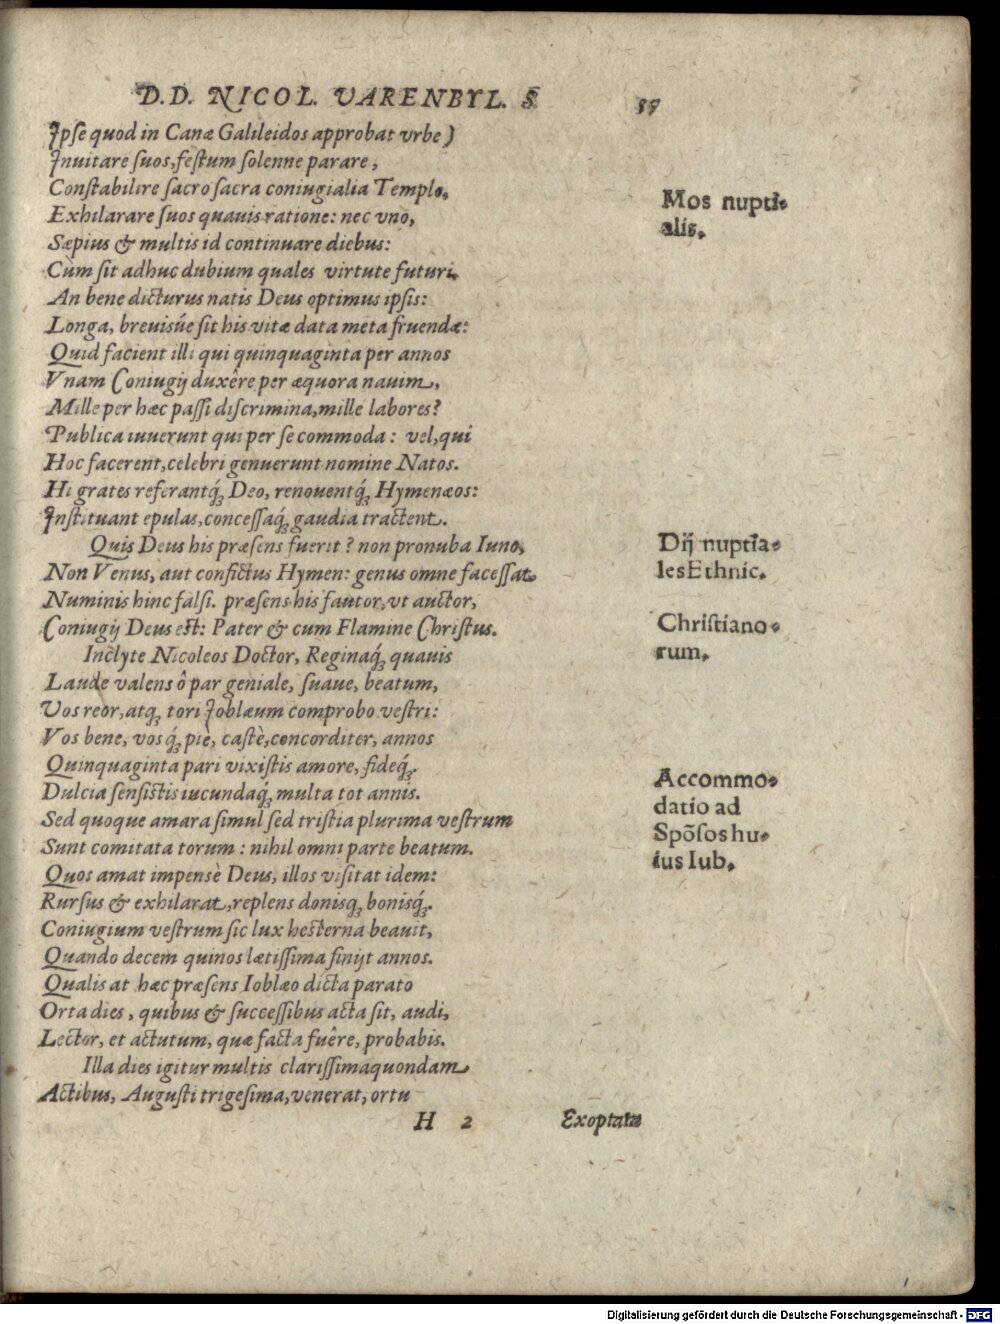 D.D. NICOL. VARENBYL. §
Ipſe quod in Canæ Galileidos approbat vrbe)
Inuitare ſuos, feſtum ſolenne parare,
Conſtabilire ſacro ſacra coniugialia Templo,
Exhilarare ſuos quauis ratione: nec vno,
Mos nupti-
alis.
Sæpius & multis id continuare diebus:
Cùm ſit adhuc dubium quales virtute futuri,
An bene dicturus natis Deus optimus ipſis:
Longa, breuisúe ſit his vitæ data meta fruendæ:
Quid facient illi qui quinquaginta per annos
Vnam Coniugij duxêre per æquora nauim,
Mille per hæc paſſi diſcrimina, mille labores?
Publica iuuerunt qui per ſe commoda: vel, qui
Hoc facerent, celebri genuerunt nomine Natos.
Hi grates referantq́; Deo, renouentq́; Hymenæos:
Inſtituant epulas, conceſſaq́; gaudia tractent.
Quis Deus his præſens fuerit? non pronuba Iuno,
Non Venus, aut confictus Hymen: genus omne faceſſat
Dij nuptia-
les Ethnic.
Numinis hinc falſi. præſens his fautor, vt auctor,
Coniugij Deus est: Pater & cum Flamine Chriſtus.
Chriſtiano-
rum.
Inclyte Nicoleos Doctor, Reginaq́; quauis
Laude valens ô par geniale, ſuaue, beatum,
Vos reor, atq; tori Ioblæum comprobo veſtri:
Vos bene, vosq́; piè, caſtè, concorditer, annos
Quinquaginta pari vixiſtis amore, fideq́;.
Dulcia ſenſistis iucundaq́; multa tot annis.
Sed quoque amara ſimul ſed triſtia plurima veſtrum
Sunt comitata torum: nihil omni parte beatum.
Accommo-
datio ad
Spõſos hu-
ius Iub.
Quos amat impensè Deus, illos viſitat idem:
Rurſus & exhilarat, replens donisq; bonisq́;.
Coniugium veſtrum ſic lux hesterna beauit,
Quando decem quinos lætiſſima finijt annos.
Qualis at hæc præſens Ioblæo dicta parato
Orta dies, quibus & ſucceſſibus acta ſit, audi,
Lector, et actutum, quæ facta fuêre, probabis.
Illa dies igitur multis clariſſima quondam
Actibus, Auguſti trigeſima, venerat, ortu
H 2 Exoptata
Digitalisierung gefördert durch die Deutsche Forschungsgemeinschaft - DFG